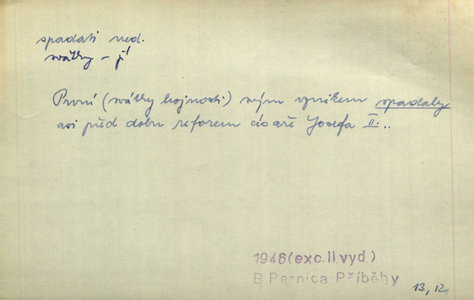 spadati ned.
svátky – jí
První (svátky hojnosti) svým vznikem spadaly
asi před dobu reforem císaře Josefa II...
1946 (exc. II vyd.)
B Pernica Příběhy
13, 12